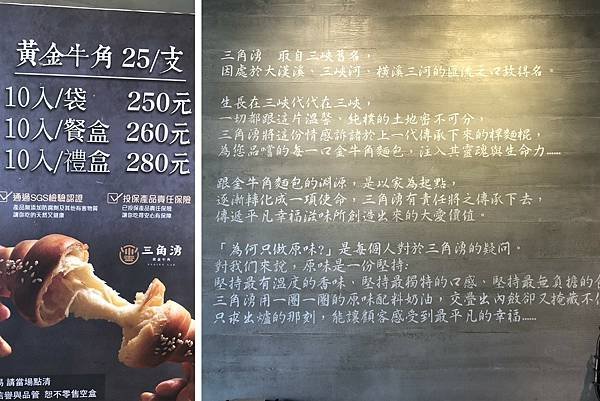 黃金牛角 25/支
10入/袋 250元
10入/餐盒 260元
10入/禮盒 280元
通過SGS檢驗認證
產品無添加防腐劑及其他有害物質
讓你吃的天然又健康
投保產品責任保險
已投保產品責任保險
讓你吃得安心有保障
三角湧
黃金牛角
請當場點清
信譽與品管 恕不零售空盒
三角湧 取自三峽舊名,
因處於大漢溪、三峽河、橫溪三河的匯流之口故得名。
生長在三峽代代在三峽,
一切都跟這片溫馨、純樸的土地密不可分,
三角湧將這份情感訴諸於上一代傳承下來的桿麵棍,
為您品嚐的每一口金牛角麵包,注入其靈魂與生命力......
跟金牛角麵包的淵源,是以家為起點,
逐漸轉化成一項使命,三角湧有責任將之傳承下去,
傳遞平凡幸福滋味所創造出來的大愛價值。
「為何只做原味?」是每個人對於三角湧的疑問。
對我們來說,原味是一份堅持:
堅持最有溫度的香味、堅持最獨特的口感、堅持最無負擔的
三角湧用一圈一圈的原味配料奶油,交疊出內斂卻又掩藏不
只求出爐的那刻,能讓顧客感受到最平凡的幸福......